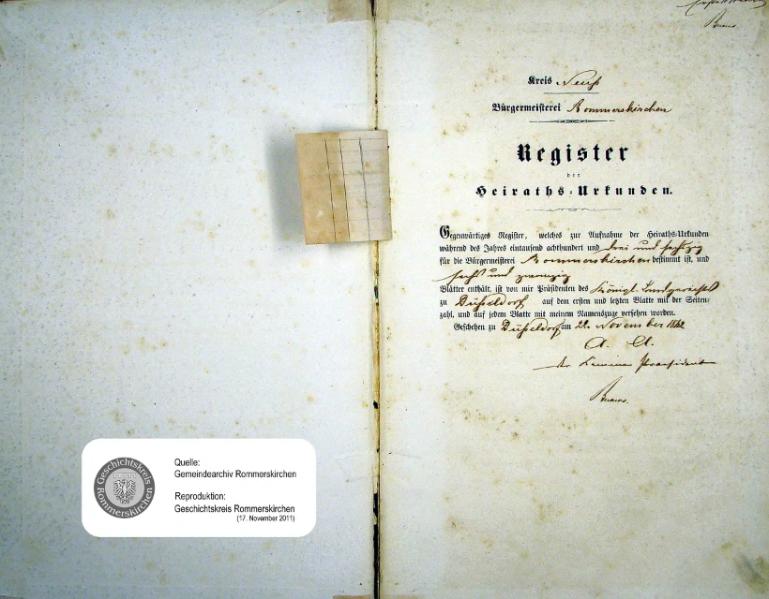 Kreis Neuß
Bürgermeisterei Rommerskirchen
Register
der
Heiraths-Urkunden.
Gegenwärtiges Register, welches zur Aufnahme der Heiraths-Urkunden
während des Jahres eintausend achthundert und drei und sechszig
für die Bürgermeisterei Rommerskirchen bestimmt ist, und
sechs und zwanzig
Blätter enthält, ist von mir Präsidenten des Königl. Landgerichts
zu Düsseldorf auf dem ersten und letzten Blatte mit der Seiten-
zahl, und auf jedem Blatte mit meinem Namenszuge versehen worden.
Geschehen zu Düsseldorf am 22. November 1862
der Kammer Praesident
Quelle:
Gemeindearchiv Rommerskirchen
Reproduktion:
Geschichtskreis Rommerskirchen
(17. November 2011)
Geschichtskreis
Rommerskirchen